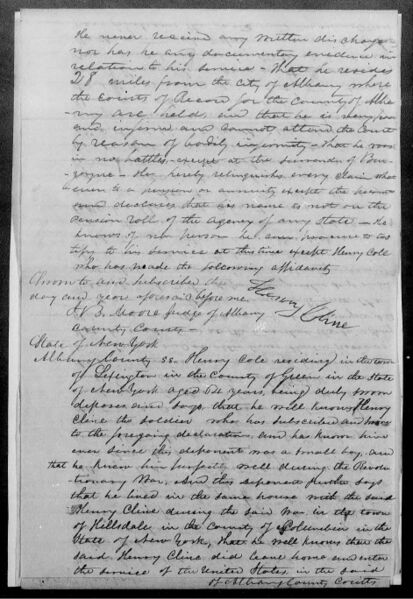 He never received any written discharge
nor has he any documentary evidence in
relation to his service - That he resides
28 miles from the City of Albany where
the Courts of Record for the County of Alba-
ny are held, and that he is very poor
and infirm and cannot attend the Court
by reason of bodily infirmity - That he was
in no battles - except at the surrender of Bur-
goyne - He hereby relinquishes every claim what
ever to a pension or annuity except the present
and declares that his name is not on the
pension roll of the agency of any State - He
knows of no person he can procure to tes
tify to his service at this time except Henry Cole
who has made the following affidavit
Sworn to and subscribed the
day and year aforesaid before me Henry Cline
Moore Judge of Albany
County Courts -
State of New York
Albany County SS. Henry Cole residing in the town
of Lexington in the County of Green in the State
of New York aged 64 years, being duly sworn
deposes and says, that he well knows Henry
Cline the soldier who has subscribed and sworn
to the foregoing declaration, and has known him
ever since this deponent was a small boy, and
that he knew him perfectly well during the Revolu
tionary War, And this deponent further says
that he lived in the same house with the said
Henry Cline during the said War in the town
of Hillsdale in the County of Columbia in the
State of New York, that he well knows that the
said Henry Cline did leave home and enter
the service of the United States in the said
of Albany County Courts